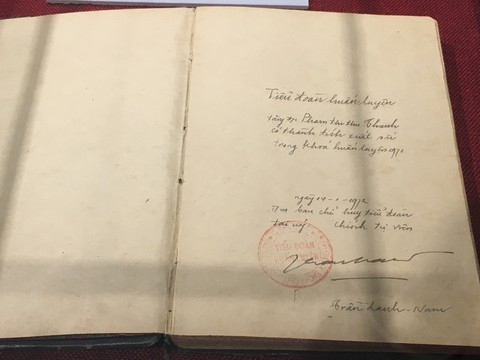 Tiểu đoàn huấn luyện
tặng Đ/c Phạm thị thu Thanh
có thành tích xuất sắc
trong khoá huấn luyện 1971
ngày 14-1-1972
T/m ban chỉ huy tiểu đoàn
chính trị viên
TIỂU ĐOÀN
Trần Thanh-Nam